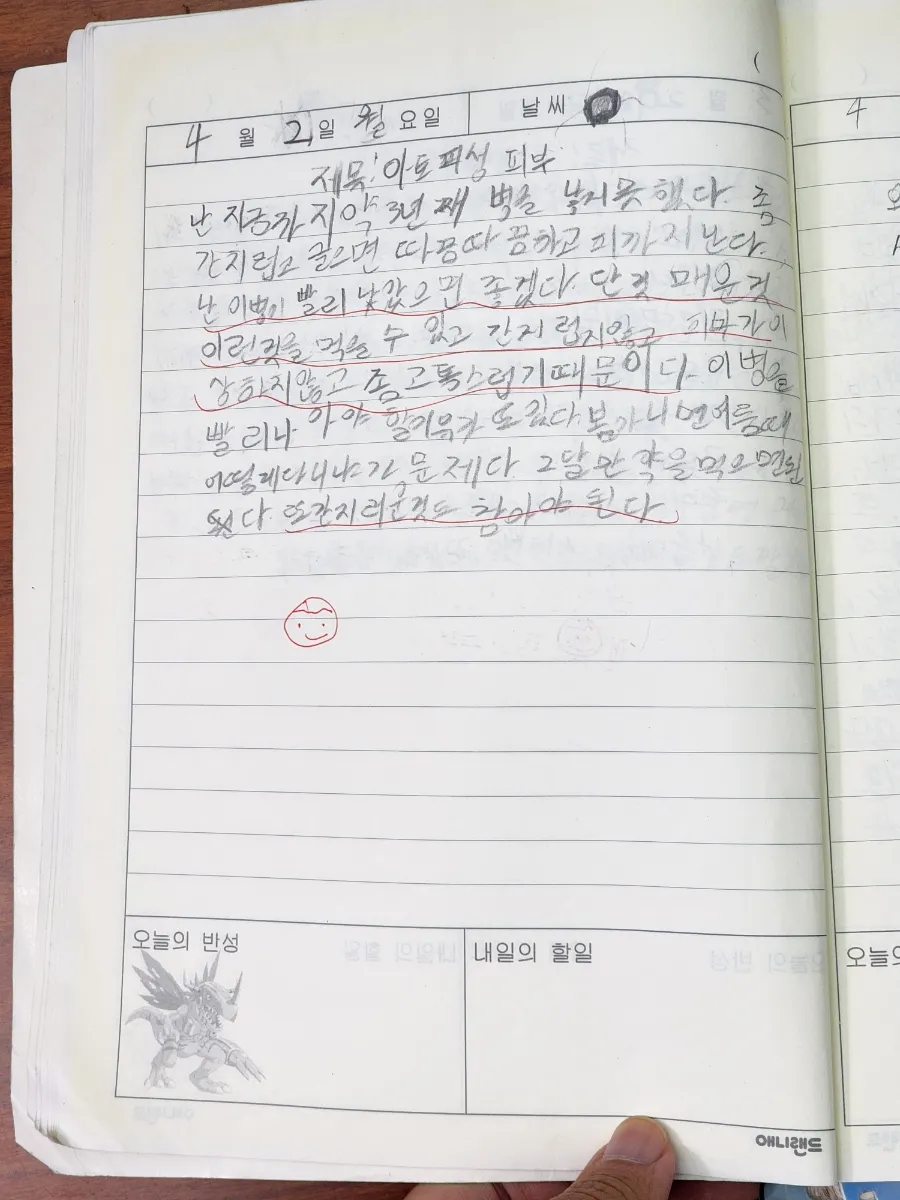 4 월 2일 월 요일 날씨
제목: 아토피성 피부
난 지금까지 약 3년 째 병을 낳지 못 했다. 좀
간지럽고 긁으면 따끔따끔하고 피까지 난다.
난 이병이 빨리 낳았으면 좋겠다. 단것 매운것
이런것을 먹을 수 있고 간지럽지않고 피부가 이
상하지않고 좀 고톡스럽기때문이다. 이 병을
빨리나 아야 할이유가 또 있다. 봄
문제다. 그달만 약을 먹으면
다. 또간지러운것도 참아야 된다.
오늘의 반성 내일의 할일 오늘의
애니랜드
4